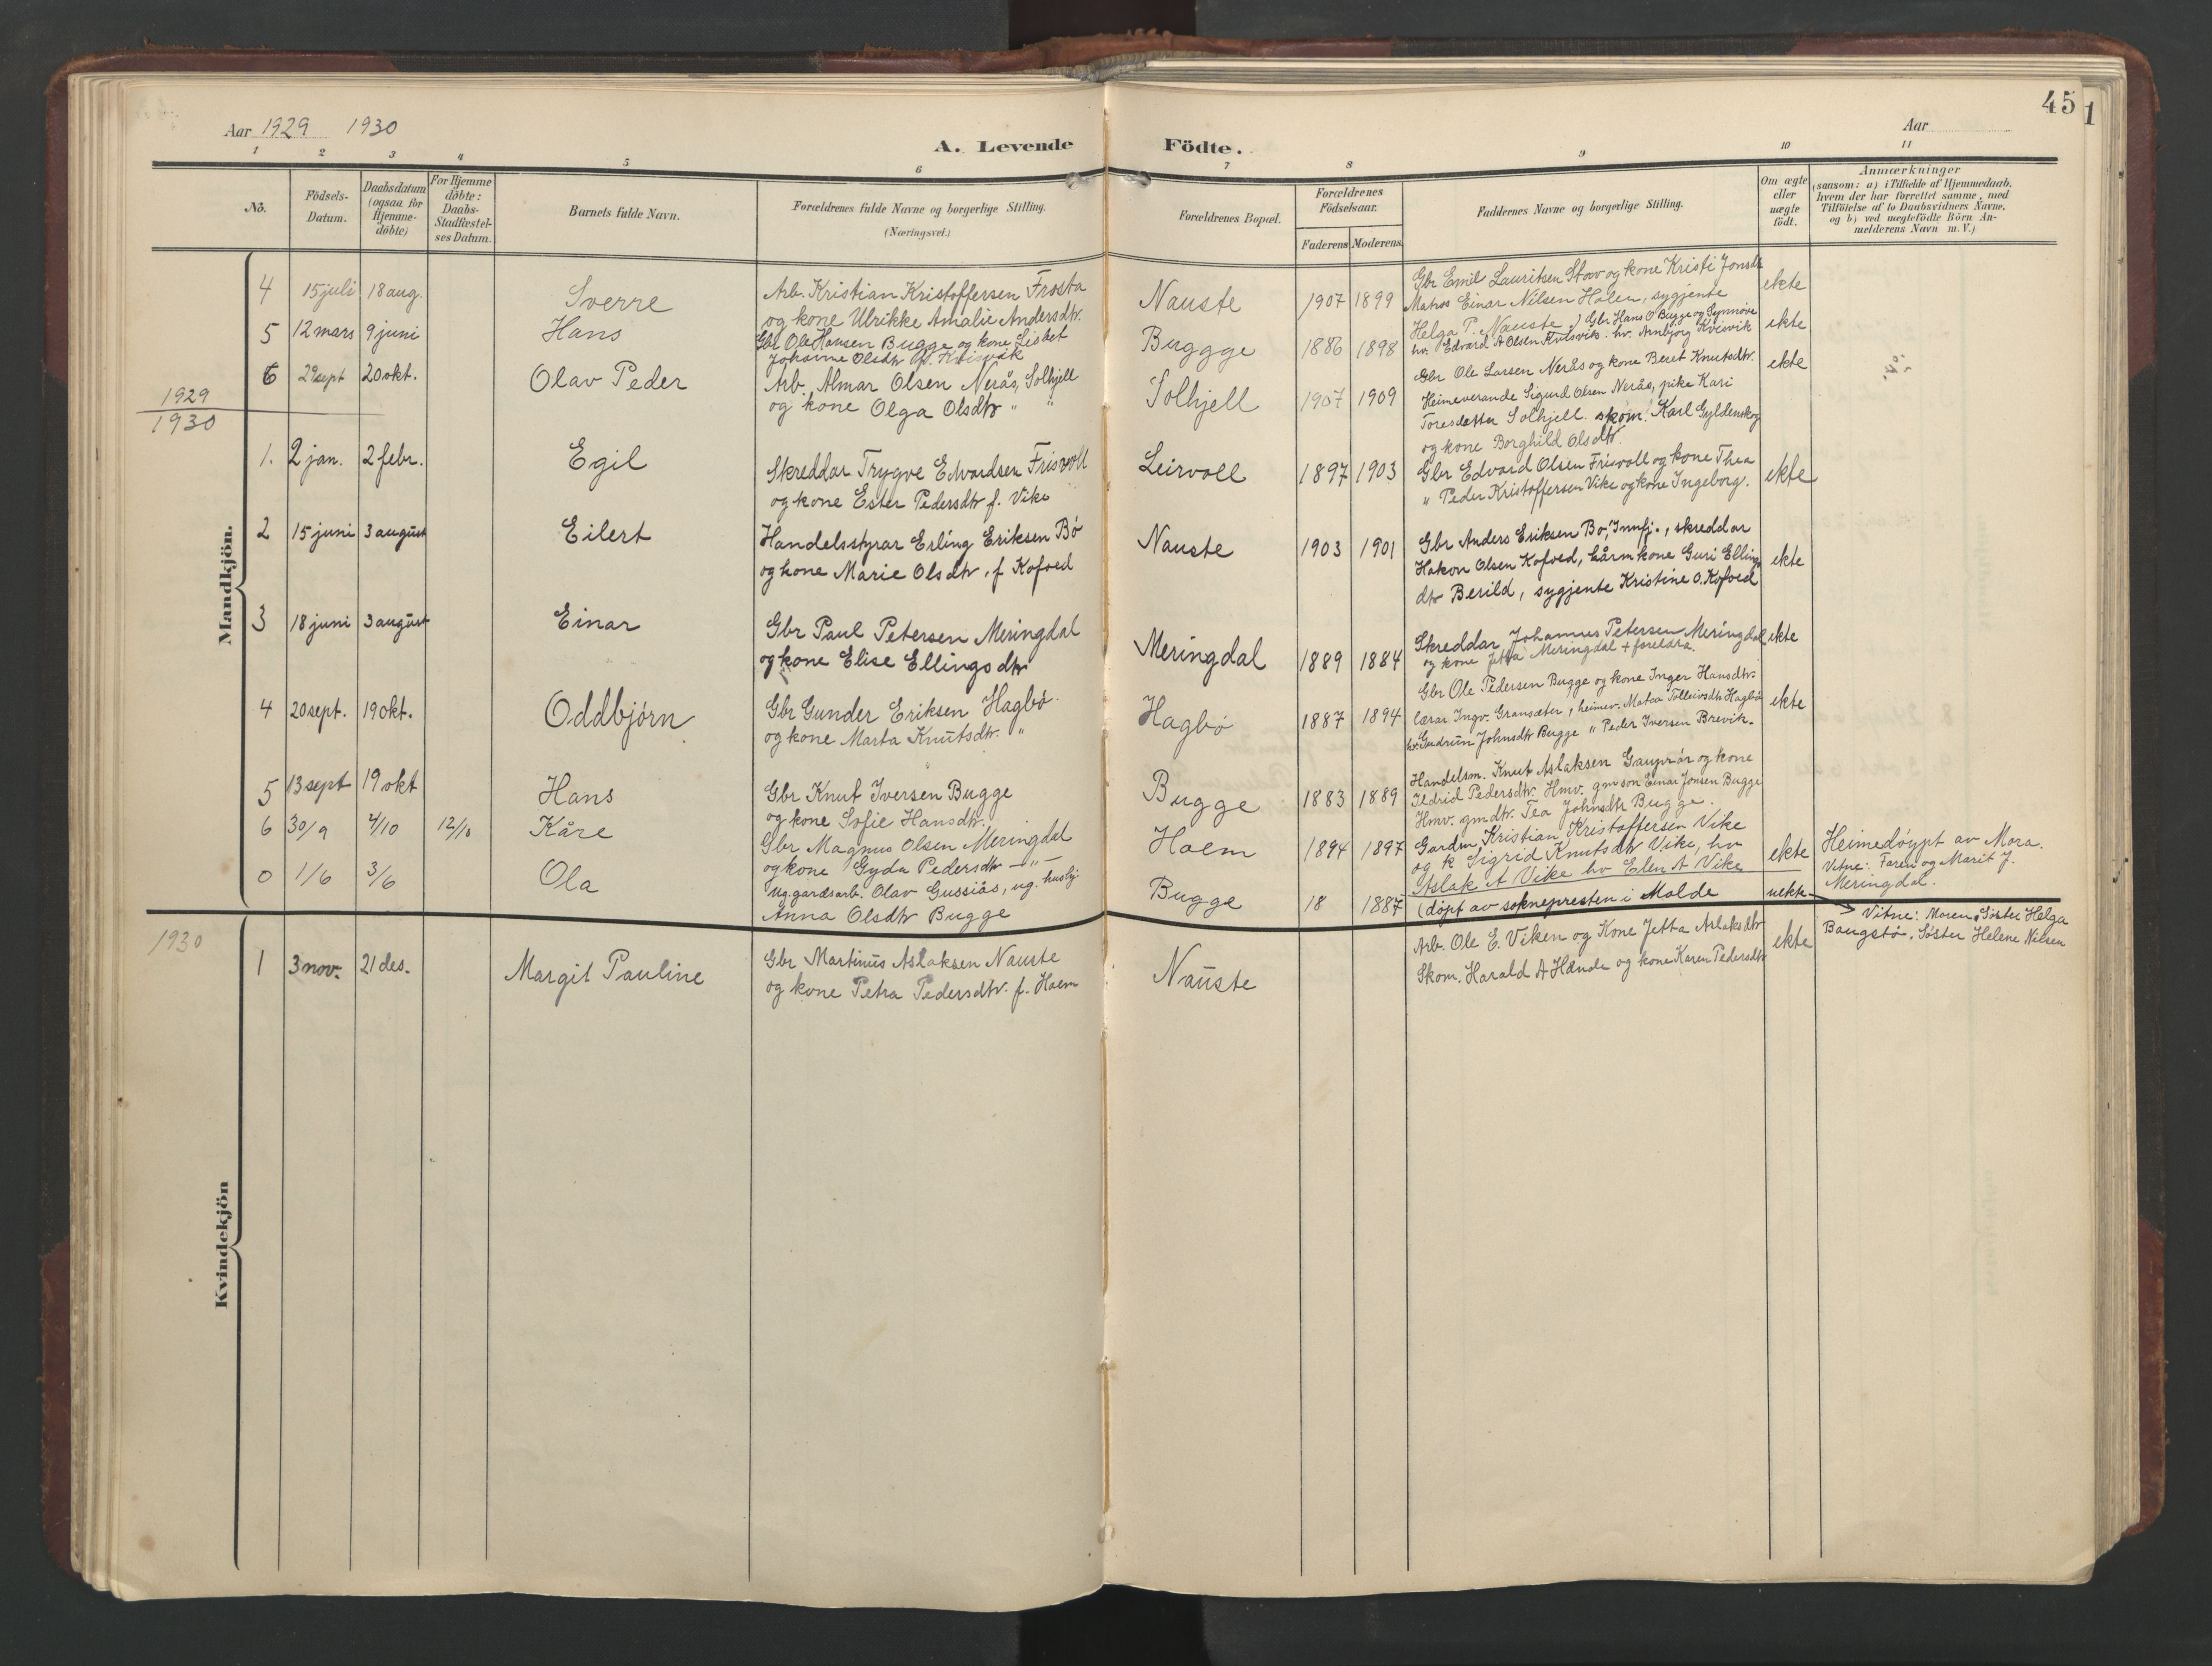 45
1
Aar 1929 1930
A. Levende Födte.
Aar
1 2 3 4 5 6 7 8 9 10 11
No.
Födsels-
Datum.
Daabsdatum
(ogsaa for
Hjemme-
döbte)
For Hjemme
döbte:
Daabs-
Stadfæstel-
ses Datum.
Barnets fulde Navn.
Forældrenes fulde Navne og borgerlige Stilling.
(Næringsvei.)
Forældrenes Bopæl.
Forældrenes
Födselsaar.
Faderens
Moderens
Faddernes Navne og borgerlige Stilling.
Om ægte
eller
uægte
födt.
Anmærkninger
(saasom: a) i Tilfælde af Hjemmedaab,
hvem der har forrettet samme, med
Tilföielse af to Daabsvidners Navne,
og b) ved uegtefödte Börn An-
melderens Navn m. V.)
Mandkjön.
4 15 juli 18 aug. Sverre
Arb. Kristian Kristoffersen Frosta
og kone Ulrikke Amalie Andersdtr.
Nauste 1907 1899
Gbr Emil Lauritsen Stow og kone Kristi Jonsdt
Matros Einar Nilsen Holen, sygjente
Helga P. Nauste
ekte
5 12 mars 9 juni Hans
Gbr Ole Hansen Bugge og kone Lisbet
Johanne Olsdtr f. Kvisvik
Buggge 1886 1898
Gbr Hans O Bugge og Synnøve
hv. Edvard A Olsen Kvisvik. hv. Arnbjørg Kvisvik
ekte
6 29 sept 20 okt. Olav Peder
Arb. Almar Olsen Nerås, Solhjell
og kone Olga Olsdtr " "
Solhjell 1907 1909
Gbr Ole Larsen Nerås og kone Beret Knutsdtr.
Heimeverande Sigurd Olsen Nerås, pike Kari
Toresdatter Solhjell. skom. Karl Gyldenskog
og kone Borghild Olsdtr.
ekte
1929
1930
1. 2 jan. 2 febr. Egil
Skreddar Trygve Edvardsen Frisvoll
og kone Ester Pedersdtr f. Vike
Leirvoll 1897 1903
Gbr Edvard Olsen Frisvoll og kone Thea
" Peder Kristoffersen Vike og kone Ingeborg.
ekte
2 15 juni 3 august Eilert
Handelsstyrar Erling Eriksen Bø
og kone Marie Olsdtr. f Kofoed
Nauste 1903 1901
Gbr Anders Eriksen Bø, Innfj., skreddar
Hakon Olsen Kofoed, kone Guri Ellings
dtr Berild, sygjente Kristine O. Kofoed
ekte
3 18 juni 3 august Einar
Gbr Paul Petersen Meringdal
og kone Elise Ellingsdtr
Meringdal 1889 1884
Skreddar Johannes Petersen Meringdal
og kone Jetta Meringdal + foreldra.
ekte
4 20 sept. 19 okt. Oddbjørn
Gbr Gunder Eriksen Hagbø
og kone Marta Knutsdtr. "
Hagbø 1887 1894
Gbr Ole Pedersen Bugge og kone Inger Hansdtr.
lærar Ingv. Gransæter, heimev. Matea Tolleivsdtr Hagbø
hv. Gudrun Johnsdtr Bugge " Peder Iversen Brevik.
ekte
5 13 sept 19 okt Hans
Gbr Knut Iversen Bugge
og kone Sofie Hansdtr.
Bugge 1883 1889
Handelsm. Knut Aslaksen Gauprør og kone
Ildrid Pedersdtr. Hmv. gmson Einar Jonsen Bugge
Hmv. gmdtr. Tea Johnsdtr Bugge.
6 30/9 4/10 12/10 Kåre
Gbr Magnus Olsen Meringdal
og kone Gyda Pedersdtr — " —
Holm 1894 1897
Gardm Kristian Kristoffersen Vike
og k Sigrid Knutsdtr Vike, hv
Aslak A Vike hv Elen A Vike
ekte
Heimedøypt av Mora.
Vitne: Faren og Marit J.
Meringdal.
0 1/6 3/6 Ola
ug. gardsarb. Olav Gussiås, ug. husbj
Anna Olsdtr Bugge
Bugge 18 1887
(døpt av soknepresten i Molde
uekte
Vitne: Moren, Søster Helga
Baugstø, Søster Helene Nilsen
Kvindekjön
1930
1 3 nov. 21 des. Margit Pauline
Gbr Martinus Aslaksen Nauste
og kone Petra Pedersdtr. f. Holm
Nauste
Arb. Ole E. Viken og Kone Jetta Aslaksdtr
Skom. Harald A Hande og kone Karen Pedersdtr
ekte